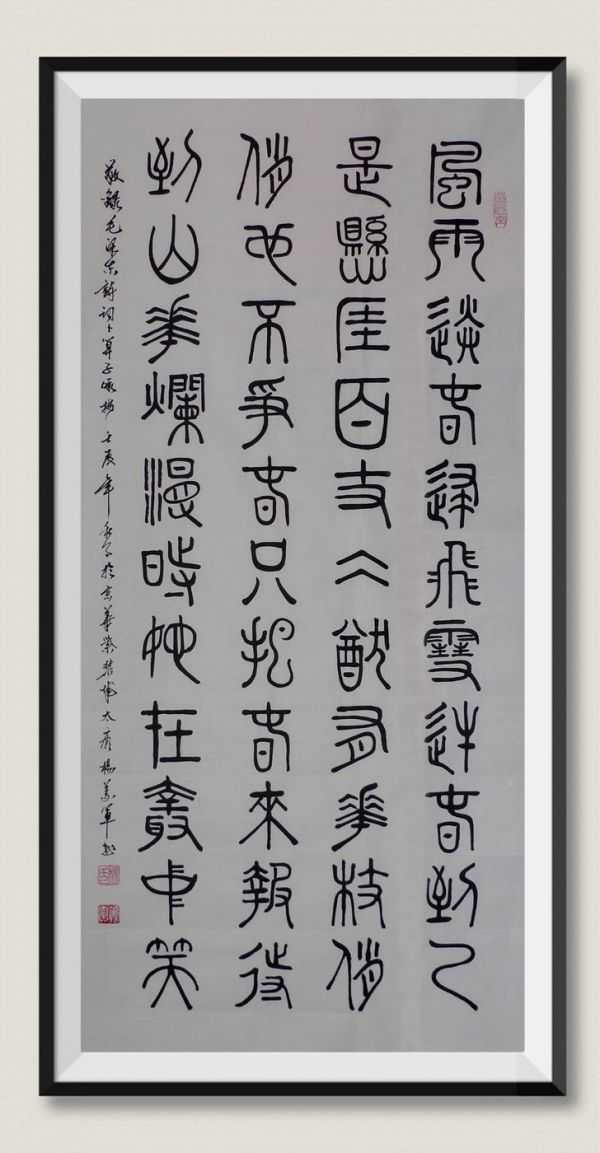 風雨送春歸飛雪迎春到已
是懸崖百丈冰猶有花枝俏
俏也不爭春只把春來報待
到山花爛漫時她在叢中笑
敬錄毛澤东詩词卜算子咏梅 壬辰年 於京華 楊美軍